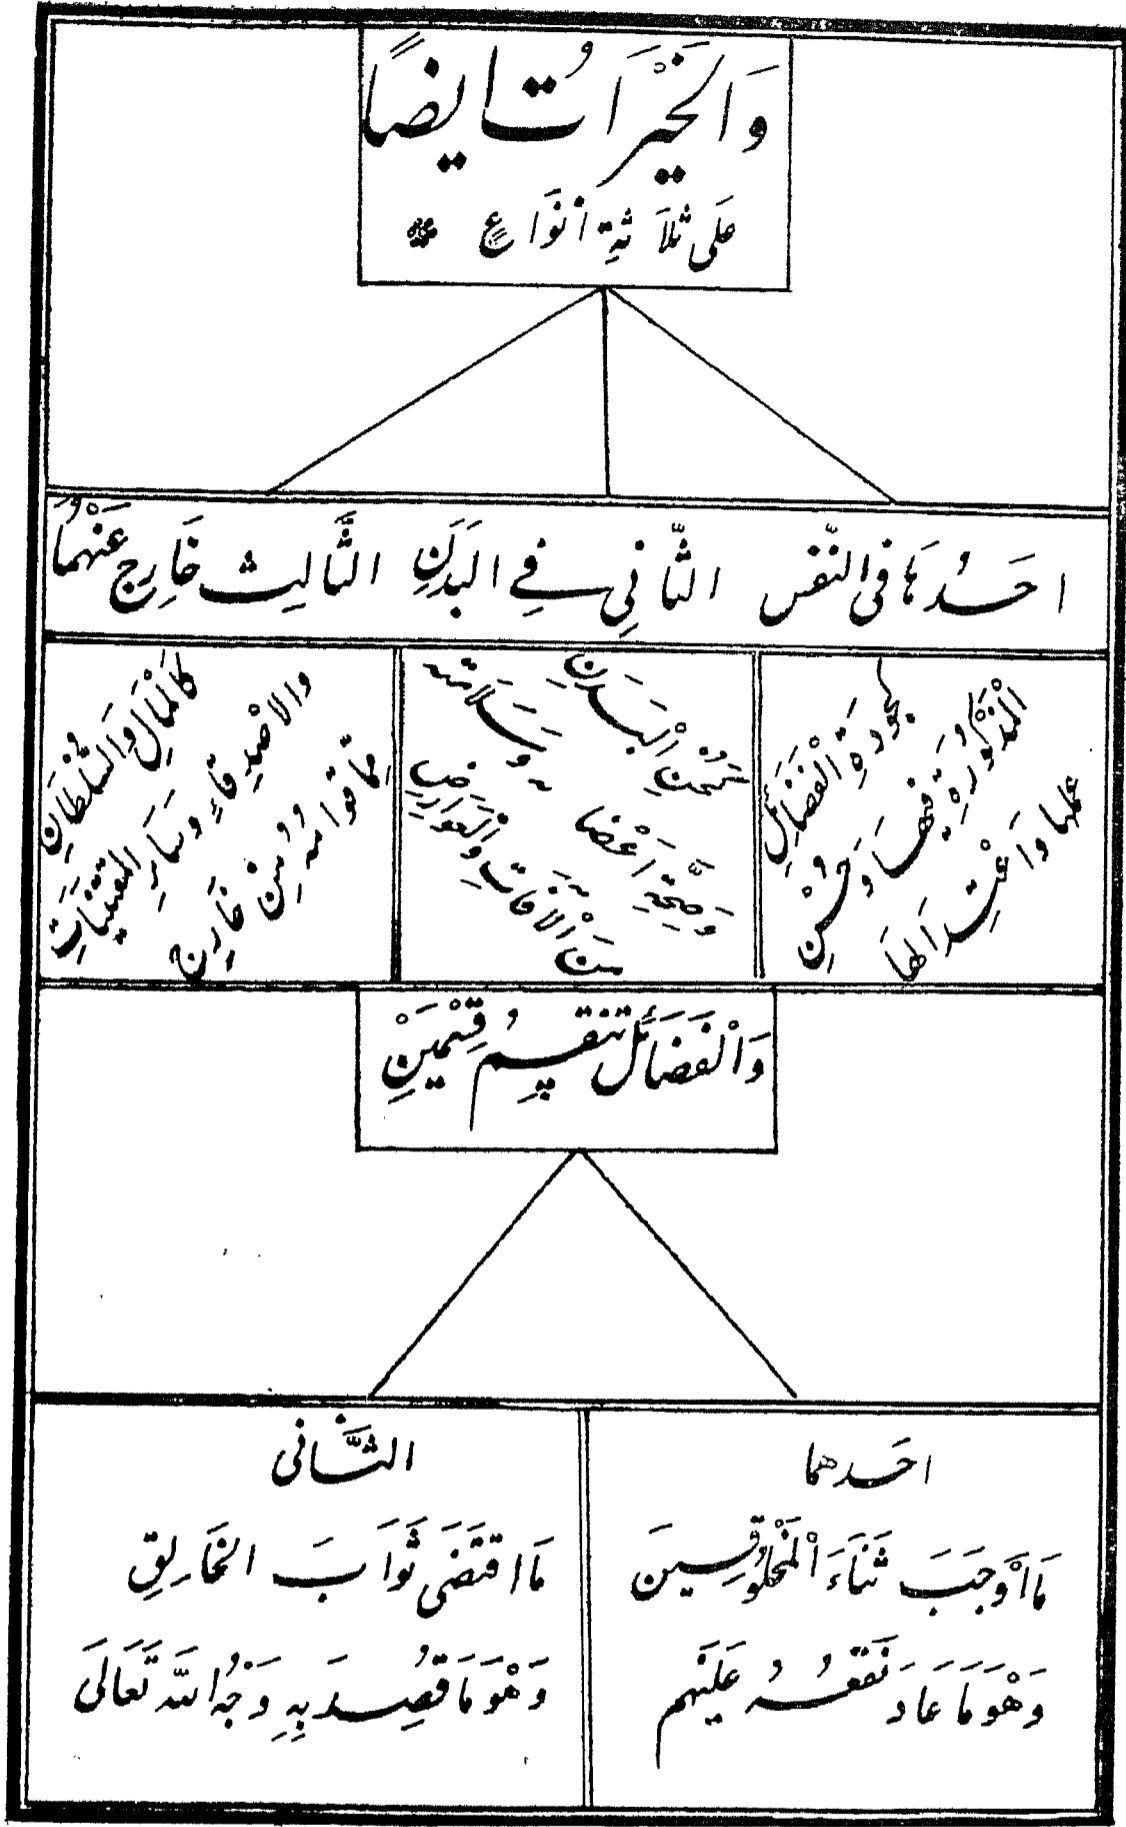 وَالخَيْرَاتُ ايضًا
عَلى ثلاَ ثَةِ أنوَاعٍ
احَدُهَا فى النّفس الثّانِي فِي البَدَنِ الثَّالِث خَارِج عَنْهُمَا
كجودةِ الْفَضَائِلِ
الْمَذْكُورَةِ فيهَا وَحُسْنِ
عملها وَاعْتِدَالهَا
كَحُسْنِ الْبَدَنِ وَسَلَامته
وَصِحَّةِ اَعْضَائه
مِنَ الْآفَاتِ وَالْعَوَارِضِ
كالمَالِ وَالسُّلْطَانِ
والاصْدِقَاءِ وسَائرِ المقتنيَاتِ
خَارِج
وَالْفَضَائل تنقسِمُ قِسْمَيْنِ
احَدهما
مَا اَوْجَبَ ثَنَاءَ الْمَخْلُوقِينَ
وَهْوَ مَا عَادَ نَفْعُهُ عَلَيْهم
الثَّانى
مَا اقتَضَى ثَوَابَ الخَالِقِ
وَهْوَ مَا قُصِدَ بِهِ وَجْهُ الله تَعَالَى